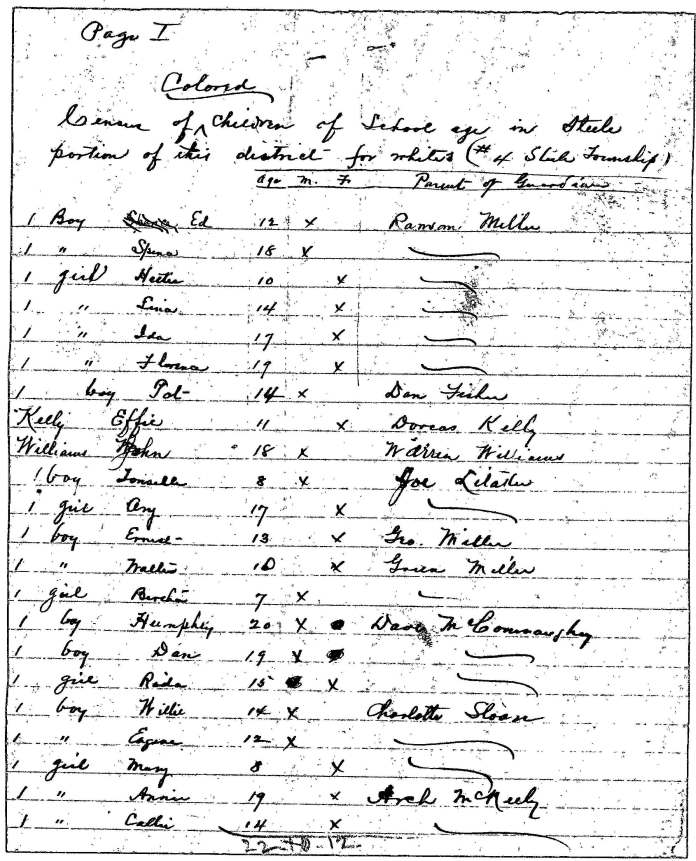 Page I
Colored
Census of ^ Children of School age in Steele
portion of this district for whites (#4 Steele Township)
Age M. F. Parent of Guardian
1 Boy Ed 12 x Ransom Miller
1 " 18 x
1 girl Hester 10 x
1 " Lina 14 x
1 " Ida 17 x
1 " Florence 19 x
1 boy Pat 14 x Dan Fisher
Kelly Effie 11 x Dorcas Kelly
Williams John 18 x Warren Williams
1 boy 8 x Joe
1 girl Any 17 x
1 boy Ernest 13 x Geo. Miller
1 " Walter 10 x Green Miller
1 girl 7 x
1 boy Humphey 20 x Dave McConnaughey
1 boy Dan 19 x
1 girl Rada 15 x
1 boy Willie 14 x Charlotte Sloan
1 " Eugene 12 x
1 girl Mary 8 x
1 " Annie 19 x Arch McKeely
1 " Callie 14 x
22-10-12